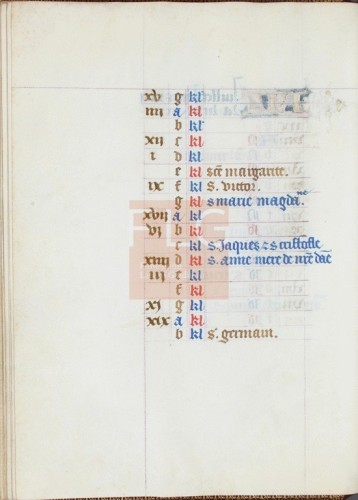 xv g kl
iiij a kl
b kl
xij c kl
i d kl
e kl sc̄e margarite.
ix f kl s. victor.
g kl s marie magda ne
xvij a kl
vi b kl
c kl s. Jaques ⁊ s cristofle
xiiij d kl s. anne mere de nr̄e dāe
iij e kl
f kl
xi g kl
xix a kl
b kl s. germain.